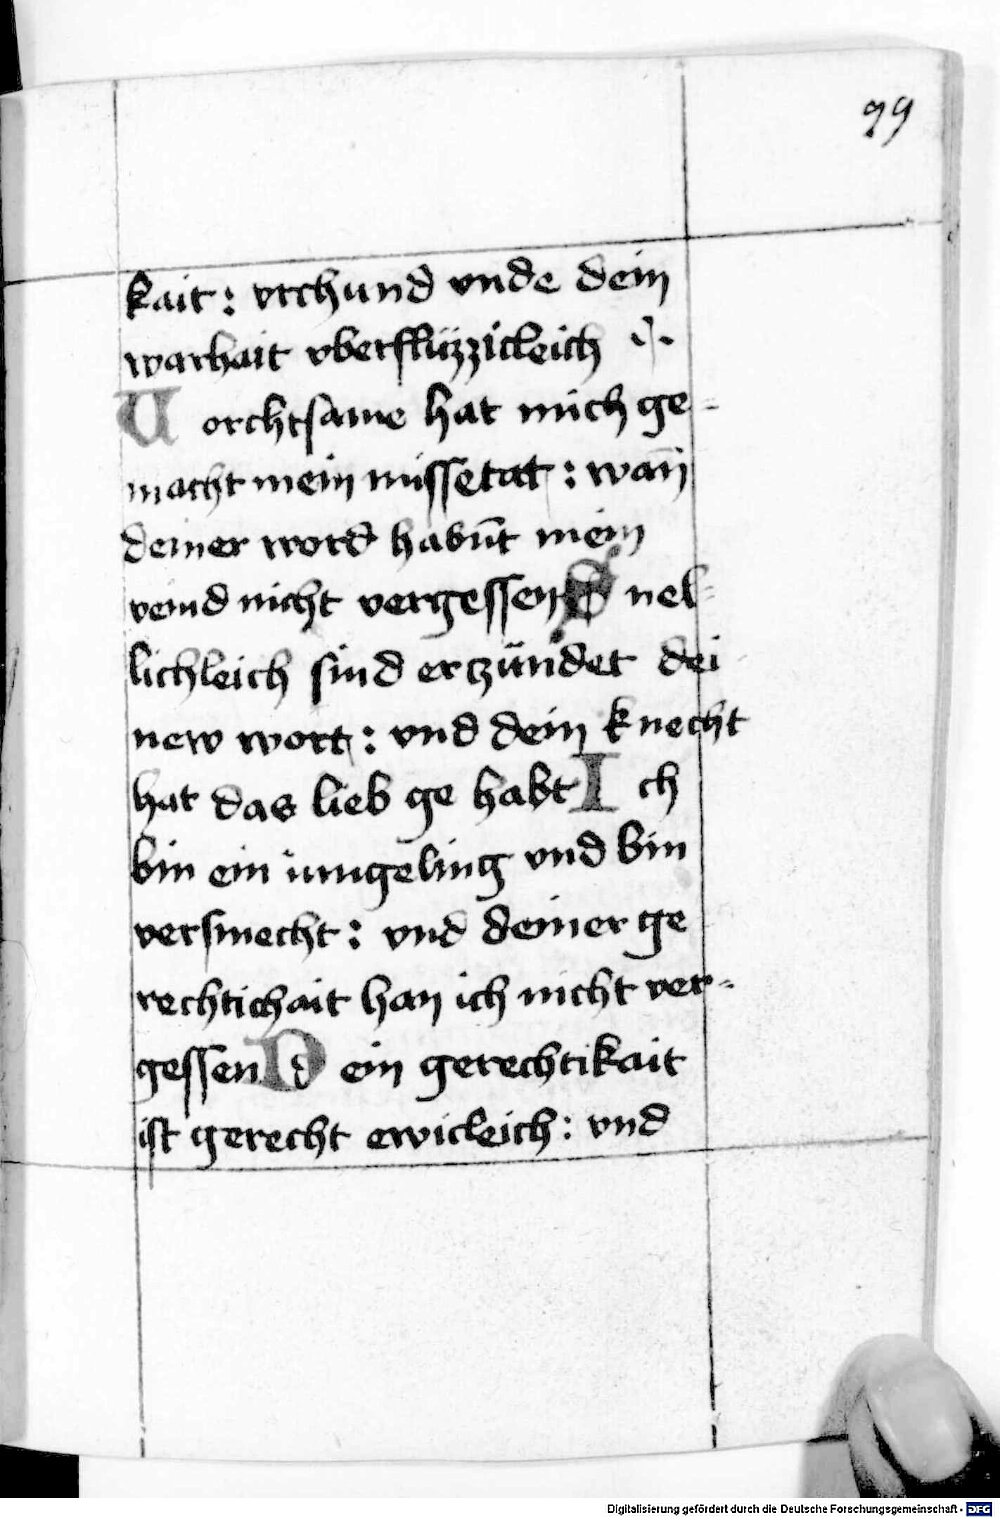 99
kait: vrchund vnde dein
warhait vberflüzzicleich
Vorchtsame hat mich ge-
macht mein missetat: wan̄
deiner word habūt mein
veind nicht vergessen Snel-
lichleich sind erzündet dei
new wort: vnd dein knecht
hat das lieb ge habt Ich
bin ein iungeling vnd bin
versmecht: vnd deiner ge
rechtichait han ich nicht ver-
gessen Dein gerechtikait
ist gerecht ewicleich: vnd
Digitalisierung gefördert durch die Deutsche Forschungsgemeinschaft - DFG